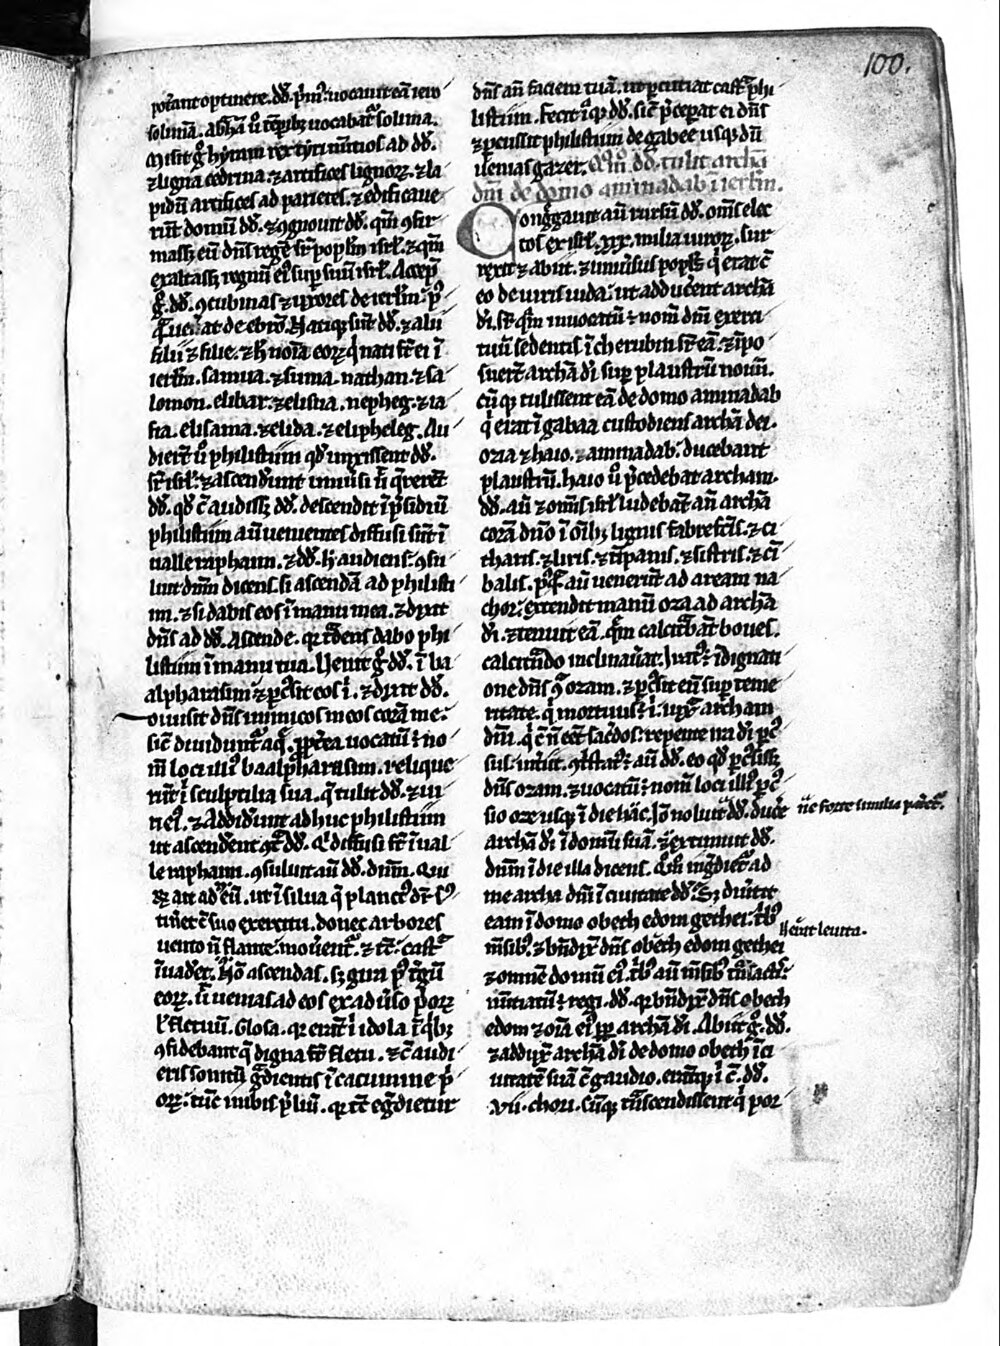 100.
poterant optinere. dd̄. pͥmꝰ. uocauit eā ieru
solimā. abͥhā ū tp̄ribꝫ uocabatͬ solima.
Misit gͦ hyram rex tyri nūtios ad dd̄.
⁊ ligna cedrina. ⁊ artifices lignoꝝ. ⁊ la
pidū artifices ad parietes. ⁊ edificaue
rūt domū dd̄. ⁊ ꝯgnouit dd̄. qm̄ ꝯfir
massꝫ eū dn̄s regē sr̄ popl̄m isrl̄. ⁊ qm̄
exaltassꝫ regnū eiꝰ suꝑ suū isrl̄. Accep̄
gͦ. dd̄. ꝯcubinas ⁊ uxores de ierl̄m. pꝰ
qͣ uen̄at de ebrō. Natiqꝫ sūt dd̄. ⁊ alii
filii ⁊ filie. ⁊ h̄ noīa eoꝝ qͥ nati st̄ ei ī
ierl̄m. samua. ⁊ suma. nathan. ⁊ sa
lomon. elibar. ⁊ elisua. nepheg. ⁊ ia
fia. elisama. ⁊ elida. ⁊ elipheleg. Au
dierūt ū philistiim qd̄ unxissent dd̄.
sr̄ isrl̄. ⁊ ascendunt uniūsi
dd̄. qd̄ c̄ audissꝫ dd̄. descendit ī pͤsidiū
philistiim aūt uenientes diffusi sūt ī
ualle raphaim. ⁊ dd̄. h̄ audiens. ꝯsu
luit dn̄m dicens. si ascendā ad philisti
im. ⁊ si dabis eos ī manu mea. ⁊ dixit
dn̄s ad dd̄. Ascende. qͬ tͣdens dabo phi
listiim ī manu tua. Uenit gͦ dd̄. ī ba
alpharasim ⁊ ꝑcussit eos ī. ⁊ dixit dd̄.
diuisit dn̄s inimicos meos corā me.
sic̄ diuiduntͬ aqͤ. ꝓpt̄ea uocatū ē no
m̄ loci illiꝰ baalpharasim. relique
rūt ī sculptilia sua. qͤ tulit dd̄. ⁊ ui
ri eiꝰ. ⁊ Addidūt adhuc philistiim
ut ascendent ꝯtͣ dd̄. Qͥ diffusi st̄ ī ual
le raphaim. ꝯsuluit aū dd̄. dn̄m. Qui
ait ad eū. ut ī silua qͤ planctꝰ dr̄. sꝰ
tinet c̄ suo exercitu. donec arbores
uento n̄ flante. mouent̄. ⁊ tc̄. castͣ
īuadet. Nō ascendas. sꝫ gira pꝰ tͤgū
eoꝝ. ⁊ uenias ad eos ex aduͤso piroꝝ
ꝉ fletuū. Glosa. qͬ erāt ī idola ī qͥbꝫ
ꝯfidebant qͤ digna st̄ fletu. ⁊ c̄ audi
eris sonitū gͣdientis ī cacumine pi
oꝝ. tūc inibis pͤliū. qͬ tc̄ egͤdietur
dn̄s aū faciem tuā. ut ꝑcutiat castͣ phi
listiim. Fecit iͭqꝫ dd̄. sic̄ pͤceperat ei dn̄s
⁊ ꝑcussit philistiim de gabee usqꝫ dū
uenias gazer. Qm̄ dd̄. tulit archā
dn̄i de domo aminadab ī ierl̄m.
Congͤgauit aū rursū dd̄. om̄s elec
tos ex isrl̄. xxx. milia uiroꝝ. sur
rexit ⁊ abiit. ⁊ uniūsus popl̄s qͥ erat c̄
eo de uiris iuda. ut adducent archā
di. sr̄ qͣm inuocatū ē nom̄ dn̄i exerci
tuū sedentis ī cherubin sr̄ eā. ⁊ īpo
suert̄ archā di suꝑ plaustrū nouū.
cūqꝫ tulissent eā de domo aminadab
qͥ erat ī gabaa custodiens archā dei.
oza ⁊ haio. ⁊ aminadab. ducebant
plaustrū. haio ū pͤcedebat archam.
dd̄. aū ⁊ om̄s isrl̄ ludebāt an̄ archā
corā dn̄o ī oīb; lignis fabrefcīs. ⁊ ci
tharis. ⁊ liris. ⁊ tīpanis. ⁊ sistris. ⁊ cī
balis. pꝰqͣ aū uenerūt ad aream na
chor. extendit manū oza ad archā
di. ⁊ tenuit eā. qm̄ calcitͣbāt boues.
calcitͣdo inclinauͤat. Iratꝰ ē īdignati
one dn̄s ꝯͣ ozam. ⁊ ꝑcussit eū suꝑ teme
ritate. qͥ mortuus ē ī. iuxͣ archam
dn̄i. qͥ c̄ n̄ eēt sac̄dos. repente ira di ꝑc
sus. int̄iit. ꝯtͥstatꝰ ē aū dd̄. eo qd̄ ꝑcussissꝫ
dn̄s ozam. ⁊ uocatū ē nom̄ loci illiꝰ ꝑc
sio oze usqꝫ ī diē hāc. Iō noluit dd̄. duce̅
archā di ī domū suā. ⁊ extimuit dd̄.
dn̄m ī die illa dicens. Qͦm̄ ingͤdietͬ ad
me archa dn̄i ī ciuitate dd̄. Sꝫ diu̅tit
eam ī domo obeth edom gethei. tͥbꝰ
m̄sibꝰ. ⁊ bn̄dix̄ dn̄s obeth edom gethei
⁊ omnē domū eiꝰ. tͥbꝰ aū m̄sibꝰ tͣnsactis.
nūtiatū ē regi. dd̄. qͬ bn̄dix̄ dn̄s obeth
edom ⁊ oīa eiꝰ ꝓpͭ archā di. Abiit gͦ. dd̄.
⁊ addux̄ archā di de domo obeth ī ci
uitatē suā c̄ gaudio. erātqꝫ ī c̄. dd̄.
vii. chori. cūqꝫ tͣnscendissent qͥ por
ne forte similia pateretͬ.
leuita.